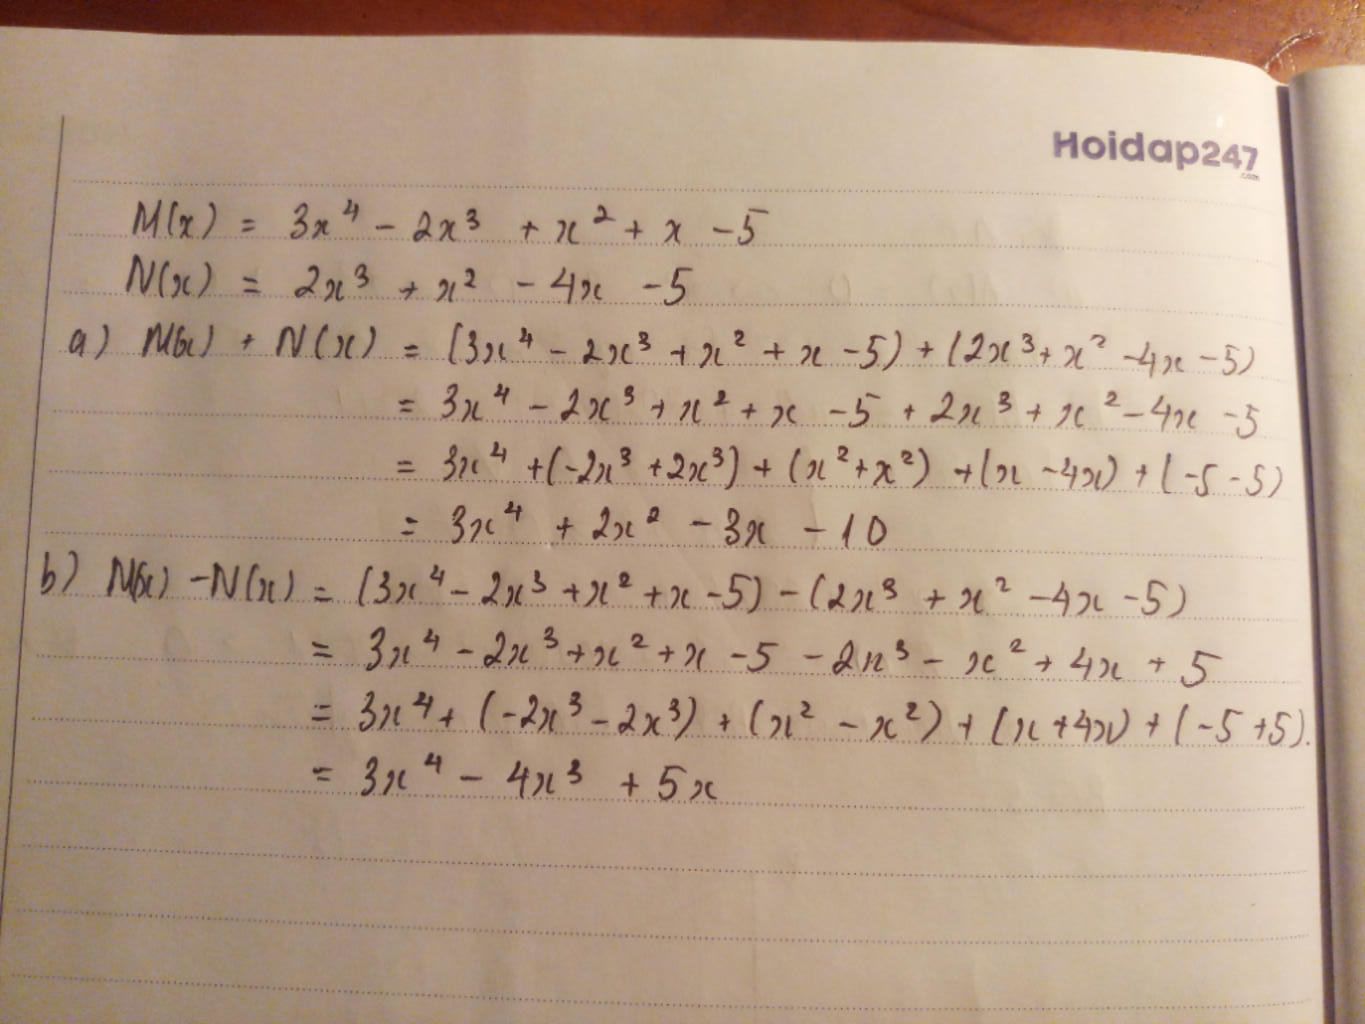 Hoidap247
.com
M(x) = 3x⁴ - 2x³ + x² + x - 5
N(x) = 2x³ + x² - 4x - 5
a) M(x) + N(x) = (3x⁴ - 2x³ + x² + x - 5) + (2x³ + x² - 4x - 5)
= 3x⁴ - 2x³ + x² + x - 5 + 2x³ + x² - 4x - 5
= 3x⁴ + (-2x³ + 2x³) + (x² + x²) + (x - 4x) + (-5 - 5)
= 3x⁴ + 2x² - 3x - 10
b) M(x) - N(x) = (3x⁴ - 2x³ + x² + x - 5) - (2x³ + x² - 4x - 5)
= 3x⁴ - 2x³ + x² + x - 5 - 2x³ - x² + 4x + 5
= 3x⁴ + (-2x³ - 2x³) + (x² - x²) + (x + 4x) + (-5 + 5).
= 3x⁴ - 4x³ + 5x